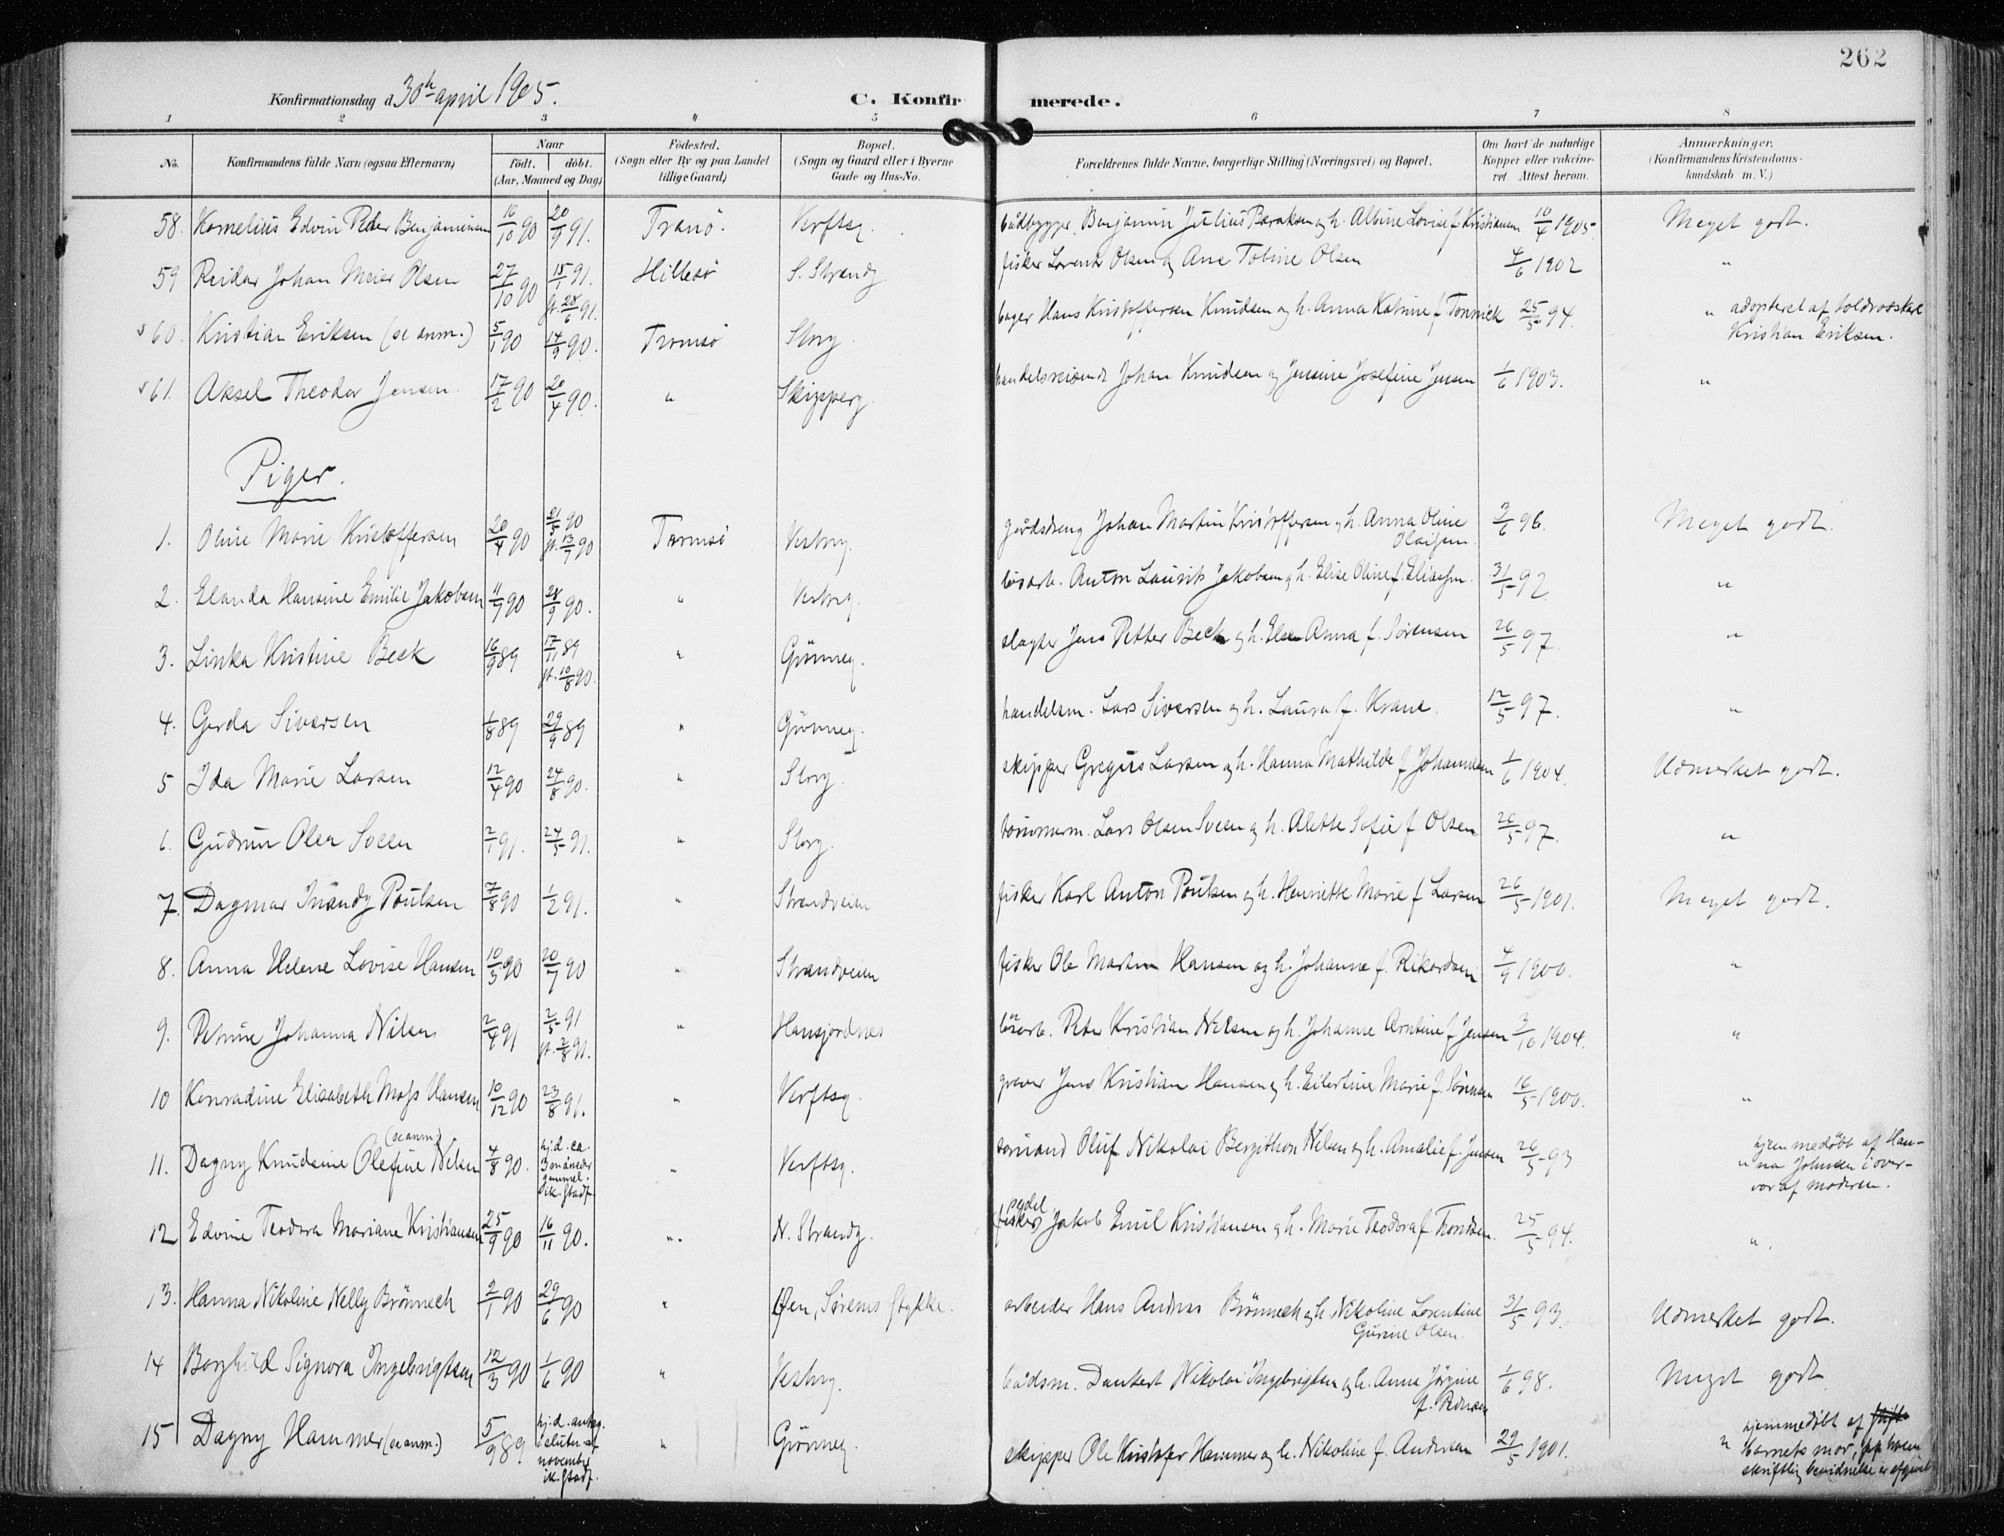 262
Konfirmationsdag d. 30te april 1905.
C. Konfirmerede.
1 2 3 4 5 6 7 8
No. Konfirmandens fulde Navn (ogsaa Efternavn) Naar født. døbt. (Aar, Maaned og Dag) Fødested. (Sogn eller By og paa Landet tillige Gaard) Bopæl. (Sogn og Gaard eller i Byerne Gade og Hus-No. Forældrenes fulde Navne, borgerlige Stilling (Næringsvei) og Bopæl. Om havt de naturlige Kopper eller vakcineret. Attest herom. Anmærkninger. (Konfirmandens Kristendomskundskab m. V.)
58. Kornelius Edvin Peder Benjaminsen 16/10 90 20/9 91. Tranø. Verftsg. båtbygger Benjamin Julius Baraksen og h. Albine Lovise f. Kristiansen 10/4 1905. Meget godt.
59 Reidar Johan Meier Olsen 27/10 90 15/1 91. st. 28/6 91. Hillesø S. Strandg. fisker Lorents Olsen og Ane Tobine Olsen 4/6 1902 "
60. Kristian Eriksen (se anm.) 5/1 90 14/9 90. Tromsø Storg. bager Hans Kristoffersen Knudsen og h. Anna Katrine f. Tonnick 25/5 94. " adopteret af toldroskarl Kristian Eriksen.
61. Aksel Theodor Jensen 17/2 90 20/4 90. " Skipperg. handelsreisende Johan Knudsen og Jensine Josefine Jensen 1/6 1903. "
Piger.
1. Oline Marie Kristoffersen 20/4 90 21/5 90 st. 13/7 90 Tromsø Vestrg. gårdsdreng Johan Martin Kristoffersen og h. Anna Oline Olaisen 3/6 96. Meget godt.
2. Elanda Hansine Emilie Jakobsen 11/9 90 28/9 90. " Vestrg. løsarb. Anton Laurits Jakobsen og h. Elise Oline f. Eliassen. 31/5 92. "
3. Linka Kristine Beck 16/9 89 17/11 89 st. 10/8 90. " Grønneg. slagter Jens Petter Beck og h. Else Anna f. Sørensen 26/5 97. "
4. Gerda Siversen 1/8 89 29/9 89 " Grønneg. handelsm. Lars Siversen og h. Laura f. Krane. 12/5 97. "
5 Ida Marie Larsen 12/4 90 24/8 90. " Storg. skipper Gregus Larsen og h. Hanna Mathilde f. Johannesen 1/6 1904. Udmerket godt.
6. Gudrun Olea Sveen 2/1 91. 24/5 91. " Storg. tømmerm. Lars Olsen Sveen og h. Alette Sofie f. Olsen 26/5 97. "
7. Dagmar Inandy Poulsen 7/8 90 1/2 91. " Strandveien fisker Karl Anton Poulsen og h. Henriette Marie f. Larsen 26/5 1901. Meget godt.
8. Anna Helene Lovise Hansen 10/5 90 20/7 90 " Strandveien fisker Ole Martin Hansen og h. Johanne f. Rikardsen 4/9 1900. "
9. Petrine Johanna Nilsen 2/4 91 2/5 91 st. 2/8 91. " Hansjordnes løsarb. Peter Kristian Nilsen og h. Johanne Arntine f. Jensen 3/10 1904. "
10 Konradine Elisabeth Moss Hansen 10/12 90 23/8 91. " Verftsg. graver Jens Kristian Hansen og h. Eilertine Marie f. Sørensen 16/5 1900. "
11. Dagny Knudsine Olefine Nilsen (se anm.) 4/8 90. hj.d. ca. 3 måneder gammel. ik. stadf. " Verftsg. sømand Oluf Nikolai Bergithon Nilsen og h. Amalie f. Jensen 26/5 93 " hjemmedøbt af Hanna Johnsen i overvær af moderen.
12 Edvine Teodora Mariane Kristiansen 25/9 90 16/11 90. ". N. Strandg. (fisker) pedel Jakob Emil Kristiansen og h. Marie Teodora f. Trondsen. 25/5 94. ".
13. Hanna Nikoline Nelly Brønneck 2/1 90 29/6 90 " Øen, Sørens stykke. arbeider Hans Andreas Brønneck og h. Nikoline Lorentine Gurine Olsen. 31/5 93. Udmerket godt.
14 Borghild Signora Ingebrigtsen 12/3 90 1/6 90 " Vestrg. bådsm. Dankert Nikolai Ingebrigtsen og h. Anne Jørgine f. Ronsen 1/6 98. Meget godt
15 Dagny Hammer (se anm.) 5/9 89 hj.d. antag. i slutn. af november ik. stadf. " Grønneg. skipper Ole Kristofer Hammer og h. Nikoline f. Andersen 29/5 1901. " hjemmedøbt af barnets mor, skriftlig bevidnelse er afgivet